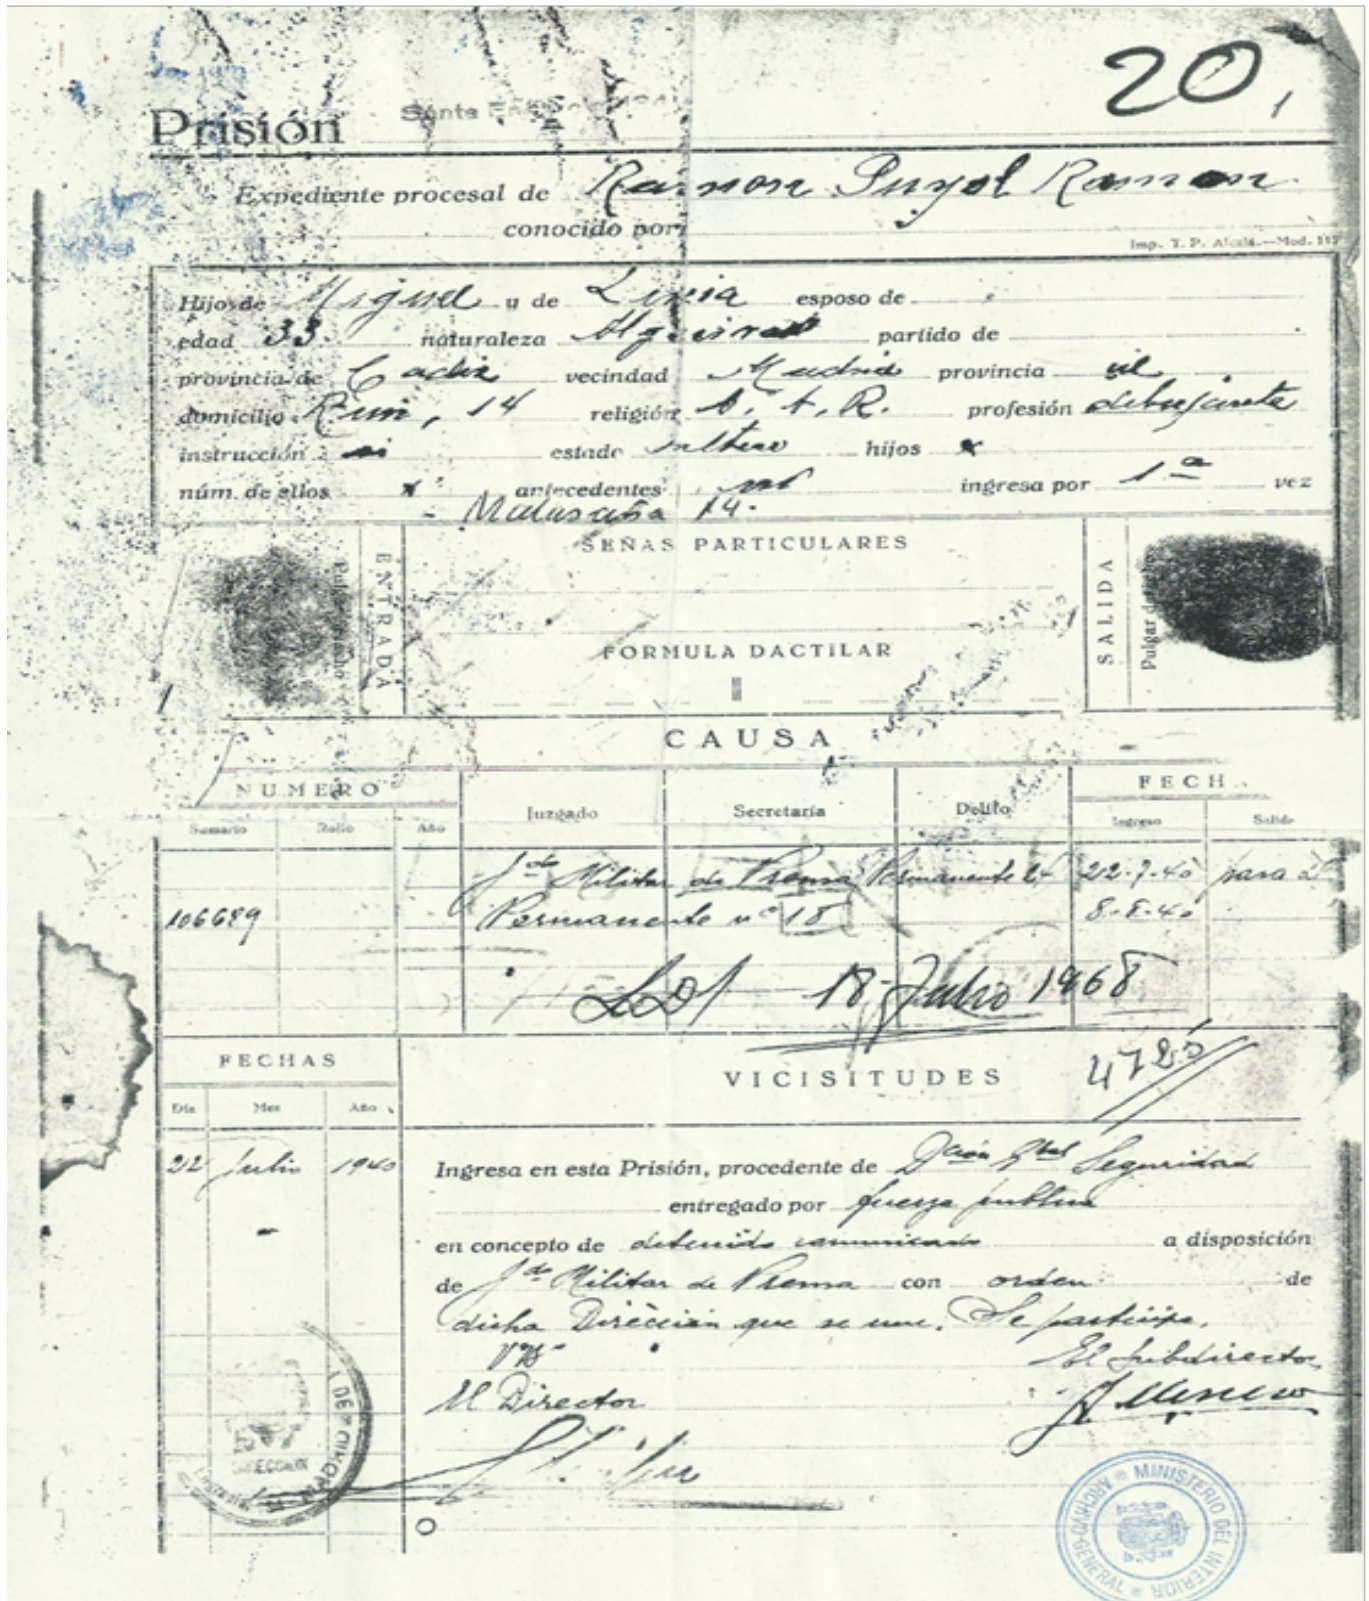 20, 1
Prisión Santa
Expediente procesal de Ramon Puyol Roman
conocido por
Imp. T. P. Alcalá.—Mod. 11
Hijo de Miguel y de esposo de
edad 33 naturaleza Algeciras partido de
provincia de Cadiz vecindad Madrid provincia id
domicilio 14 religión C. A. R. profesión dibujante
instrucción si estado soltero hijos x
núm. de ellos x antecedentes ingresa por 1ª vez
- Malasaña 14.
ENTRADA
SEÑAS PARTICULARES
FORMULA DACTILAR
SALIDA
Pulgar
CAUSA
NUMERO Juzgado Secretaría Delito FECH
Sumario Rollo Año Ingreso Salida
Jdo Militar de Prensa Permanente 22-7-40 para
106689 Permanente nº 18 8-8-40
18-Julio 1968
FECHAS VICISITUDES 4725
Día Mes Año
22 Julio 1940 Ingresa en esta Prisión, procedente de Dción Gral Seguridad
entregado por fuerza publica
en concepto de detenido comunicado a disposición
de Jdo Militar de Prensa con orden de
dicha Dirección que se une. Se participa.
VºBº El Subdirector
El Director
DIRECCION
MINISTERIO DEL INTERIOR
ARCHIVO GENERAL